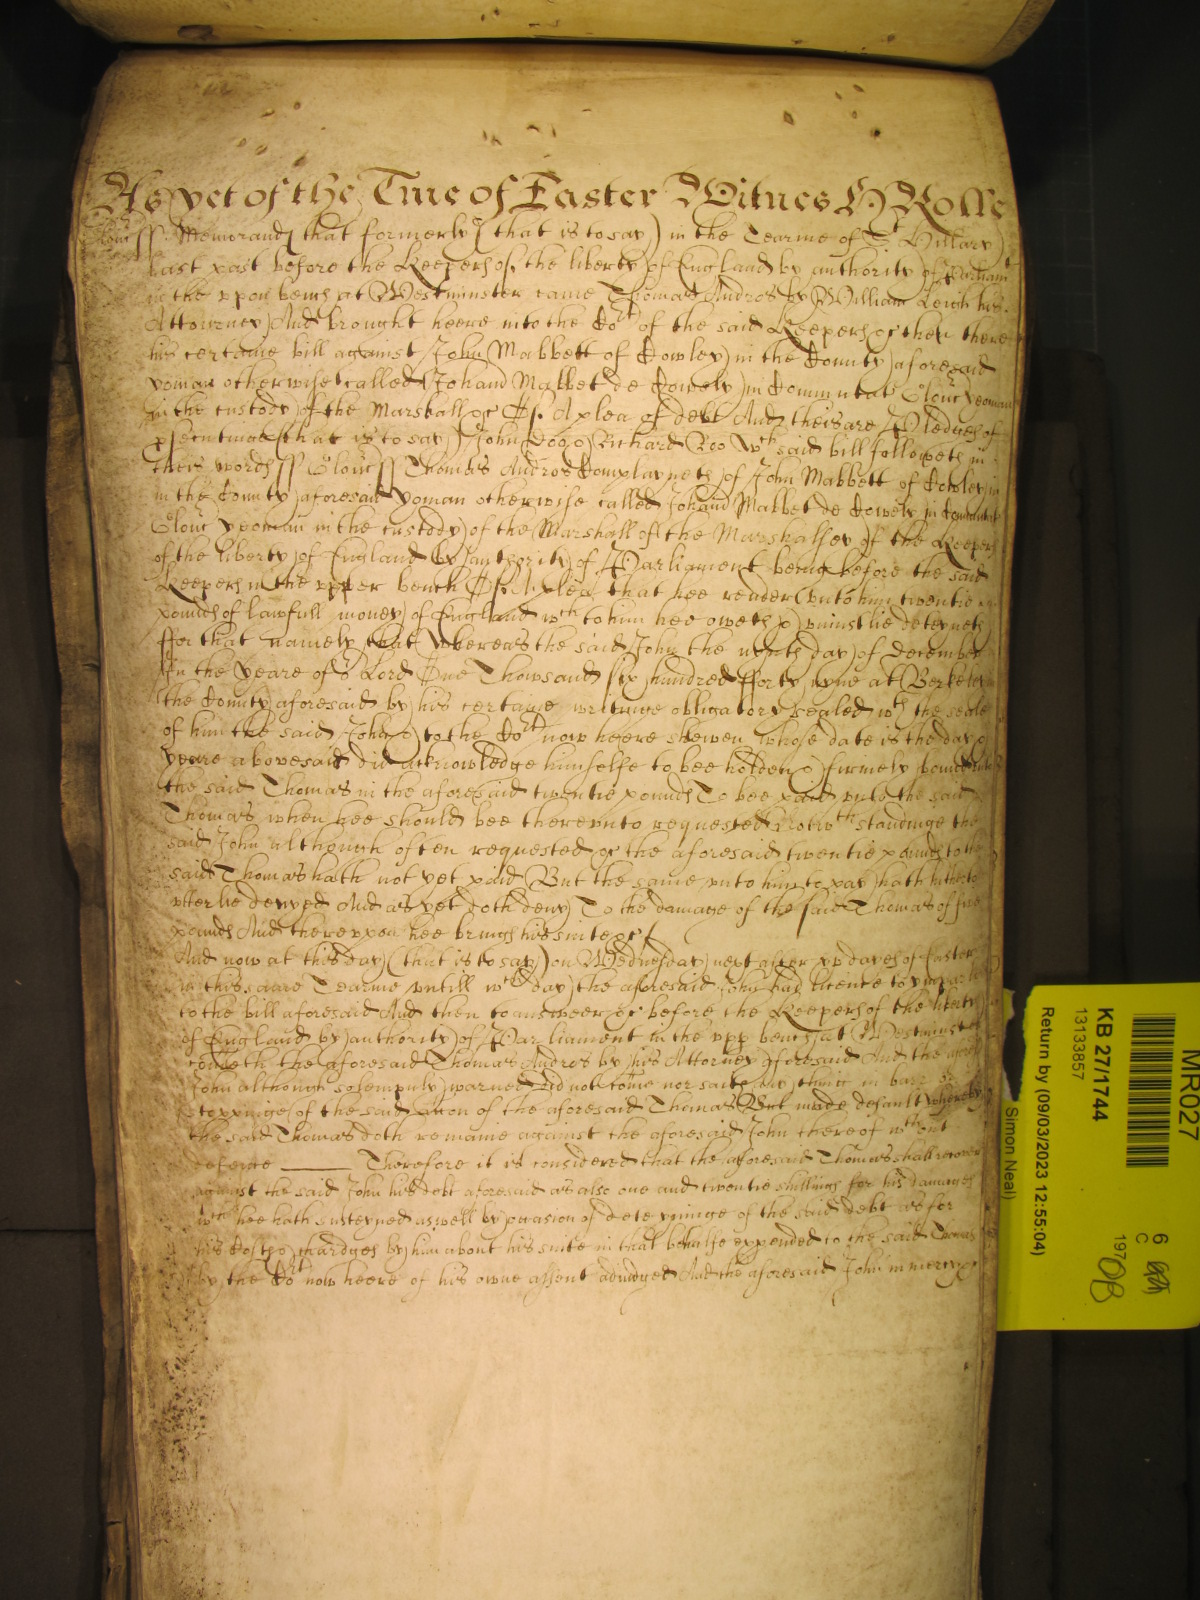 As yet of the Tme of Easter Witnes H Rolle
Glouc ss Memorand that formerly (that is to say) in the Tearme of St Hillary
last past before the Keepers of the liberty of England by authority of Parliamt
in the uppr bench at Westminster came Thomas Andros by William Leigh his
Attourney And brought heere into the Cort of the said Keepers &c then there
his certaine bill against John Mabbett of Cowley in the County aforesaid
yoman otherwise called Johand Mabbet de Cowely in Commitat Glouc yeoman
in the custody of the Marshall &c Of A plea of debt And theis are Pledges of
psecuting that is to say John Doo & Richard Roo Wch said bill followeth in
theis words ss Glouc ss Thomas Andros Complayneth of John Mabbett of Cowley in
in the County aforesaid yoman otherwise called Johand Mabbet de Cowely in Comitat
Glouc yeoman in the custody of the Marshall of the Marshalsey of the Keepers
of the liberty of England by authority of Parliament being before the said
Keepers in the upper bench Of A plea that hee render unto him twentie
pounds of lawfull money of England wch to him hee oweth & uniustlie deteyneth
ffor that namely that Whereas the said John the nynth day of December
In the yeare of or Lord One Thowsand six hundred fforty nyne at Berkeley in
the County aforesaid by his certaine writinge obligatory sealed wth the seale
of him the said John & to the Cort now heere shewen whose date is the day &
yeare abovesaid did acknowledge himselfe to bee holden & firmely bound unto
the said Thomas in the aforesaid twentie pounds To bee paid unto the said
Thomas when hee should bee thereunto requested Notwthstandinge the
said John although often requested &c the aforesaid twentie pounds to the
said Thomas hath not yet paid But the same unto him to pay hath hitherto
utterlie denyed And as yet doth deny To the damage of the said Thomas of five
pounds And thereupon hee brings his suite &c
And now at this day (that is to say) on Wednesday next after xv dayes of Easter
in this same Tearme untill wch day the aforesaid John had licence to imparle
to the bill aforesaid And then to answeer &c before the Keepers of the liberty
of England by authority of Parliament in the upp bench at Westminster
cometh the aforesaid Thomas Andros by his Attorney aforesaid And the aforesd
John although solempnly warned Did not come nor saith any thing in barr or
stoppinge of the said accon of the aforesaid Thomas But made default whereby
the said Thomas doth remaine against the aforesaid John thereof wthout
defence Therefore it is considered that the aforesaid Thomas shall recover
against the said John his debt aforesaid as also one and twentie shillings for his damages
wch hee hath susteyned aswell by occasion of deteyninge of the said debt as for
his Costs & chardges by him about his suite in that behalfe expended to the said Thomas
by the Cort now heere of his owne assent adiudged And the aforesaid John in mercy &c
MR027
KB 27/1744
13133857
Return by (09/03/2023 12:55:04)
Simon Neal)
6
C
197